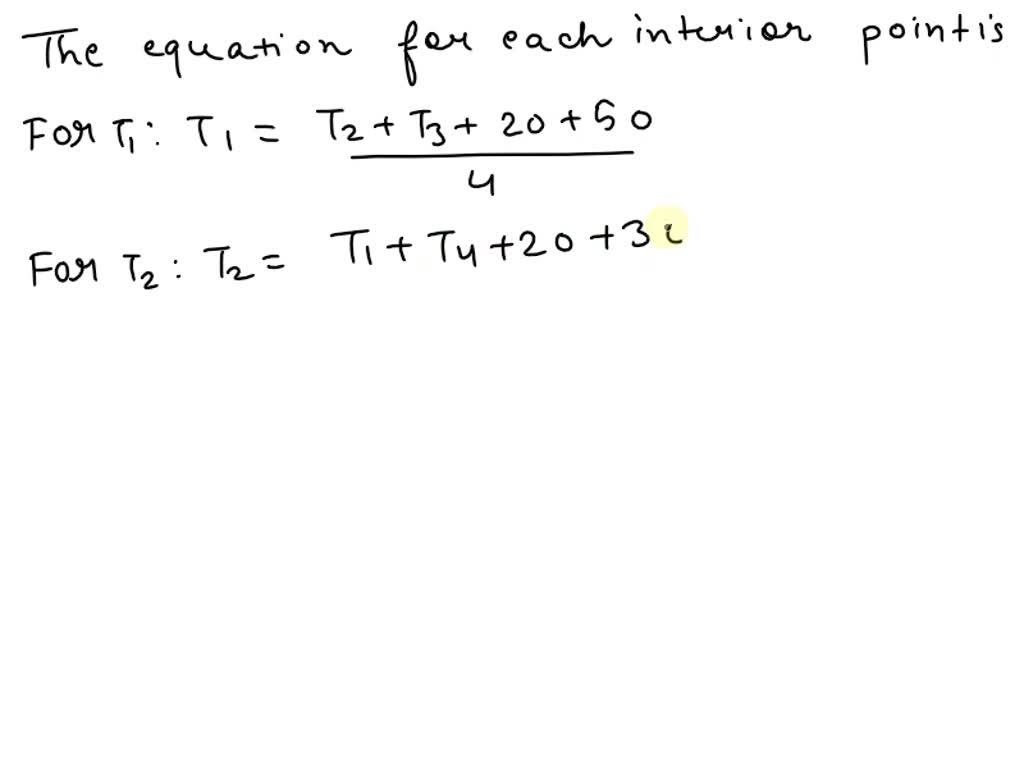 The equation for each interior point is
For T₁: T₁ = T₂ + T₃ + 20 + 50
4
For T₂: T₂ = T₁ + T₄ + 20 + 3